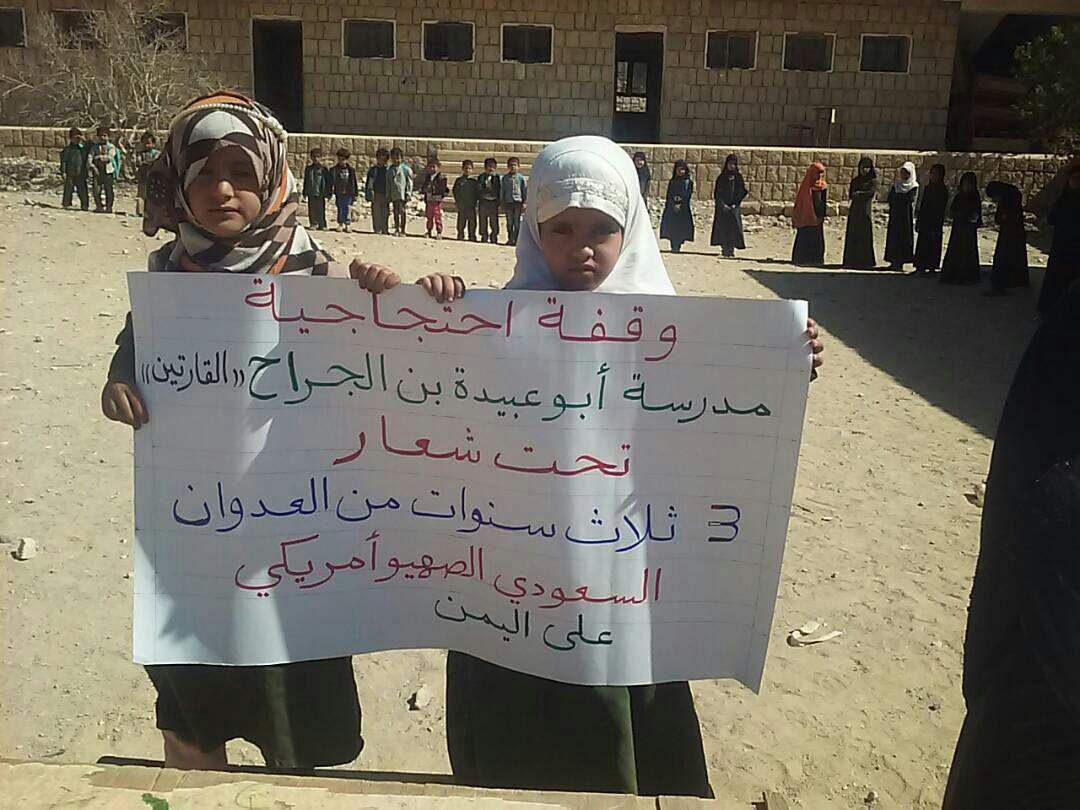 وقفة احتجاجية
مدرسة أبو عبيدة بن الجراح «القارتين»
تحت شعار
3 ثلاث سنوات من العدوان
السعودي الصهيو أمريكي
على اليمن